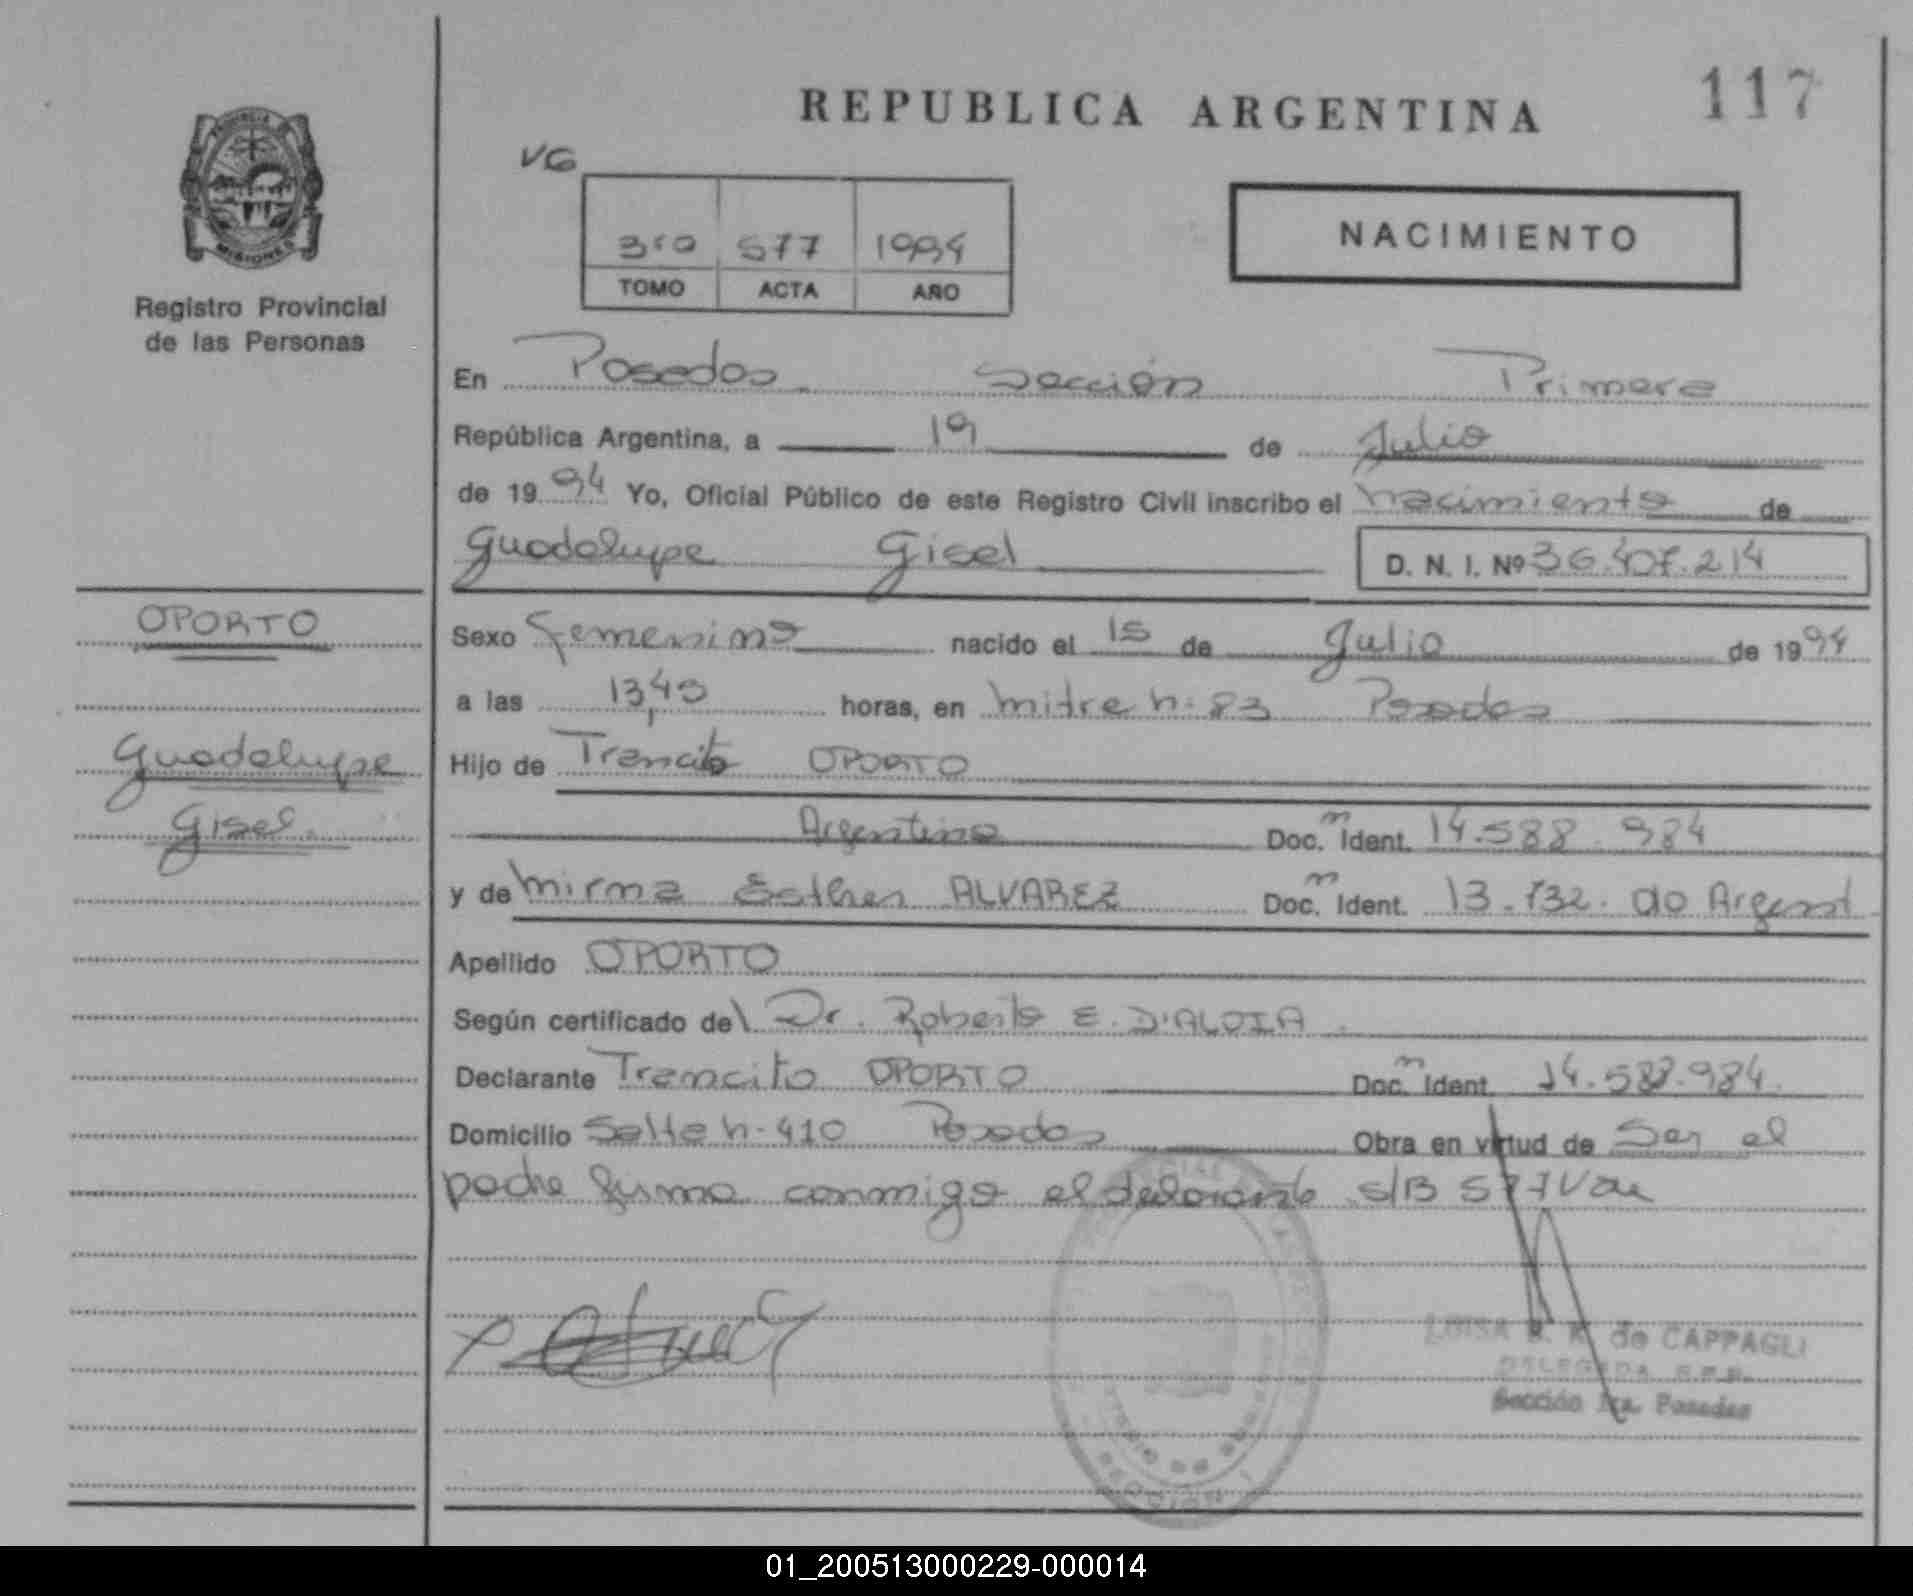 REPUBLICA ARGENTINA
117
PROVINCIA DE
MISIONES
Registro Provincial
de las Personas
VG
3ro 577 1994
TOMO ACTA AÑO
NACIMIENTO
En Posadas Sección Primera
República Argentina, a 19 de Julio
de 1994 Yo, Oficial Público de este Registro Civil inscribo el nacimiento de
Guadalupe Gisel D. N. I. Nº 36.407.214
OPORTO
Guadalupe
Gisel.
Sexo femenino nacido el 15 de Julio de 1994
a las 13,45 horas, en mitre n. 83 Posadas
Hijo de Trancito OPORTO
Argentino Doc. m Ident. 14.588.984
y de mirma Esther ALVAREZ Doc. m Ident. 13.732. Argent
Apellido OPORTO
Según certificado del Dr. Roberto E. D'ALOIA
Declarante Trancito OPORTO Doc. m Ident. 14.588.984.
Domicilio Salta n. 410 Posadas Obra en virtud de Ser el
padre firma conmigo el declarante s/B 577
LUISA R. K. de CAPPAGLI
DELEGADA R.P.P.
Sección 1ra. Posadas
01_200513000229-000014